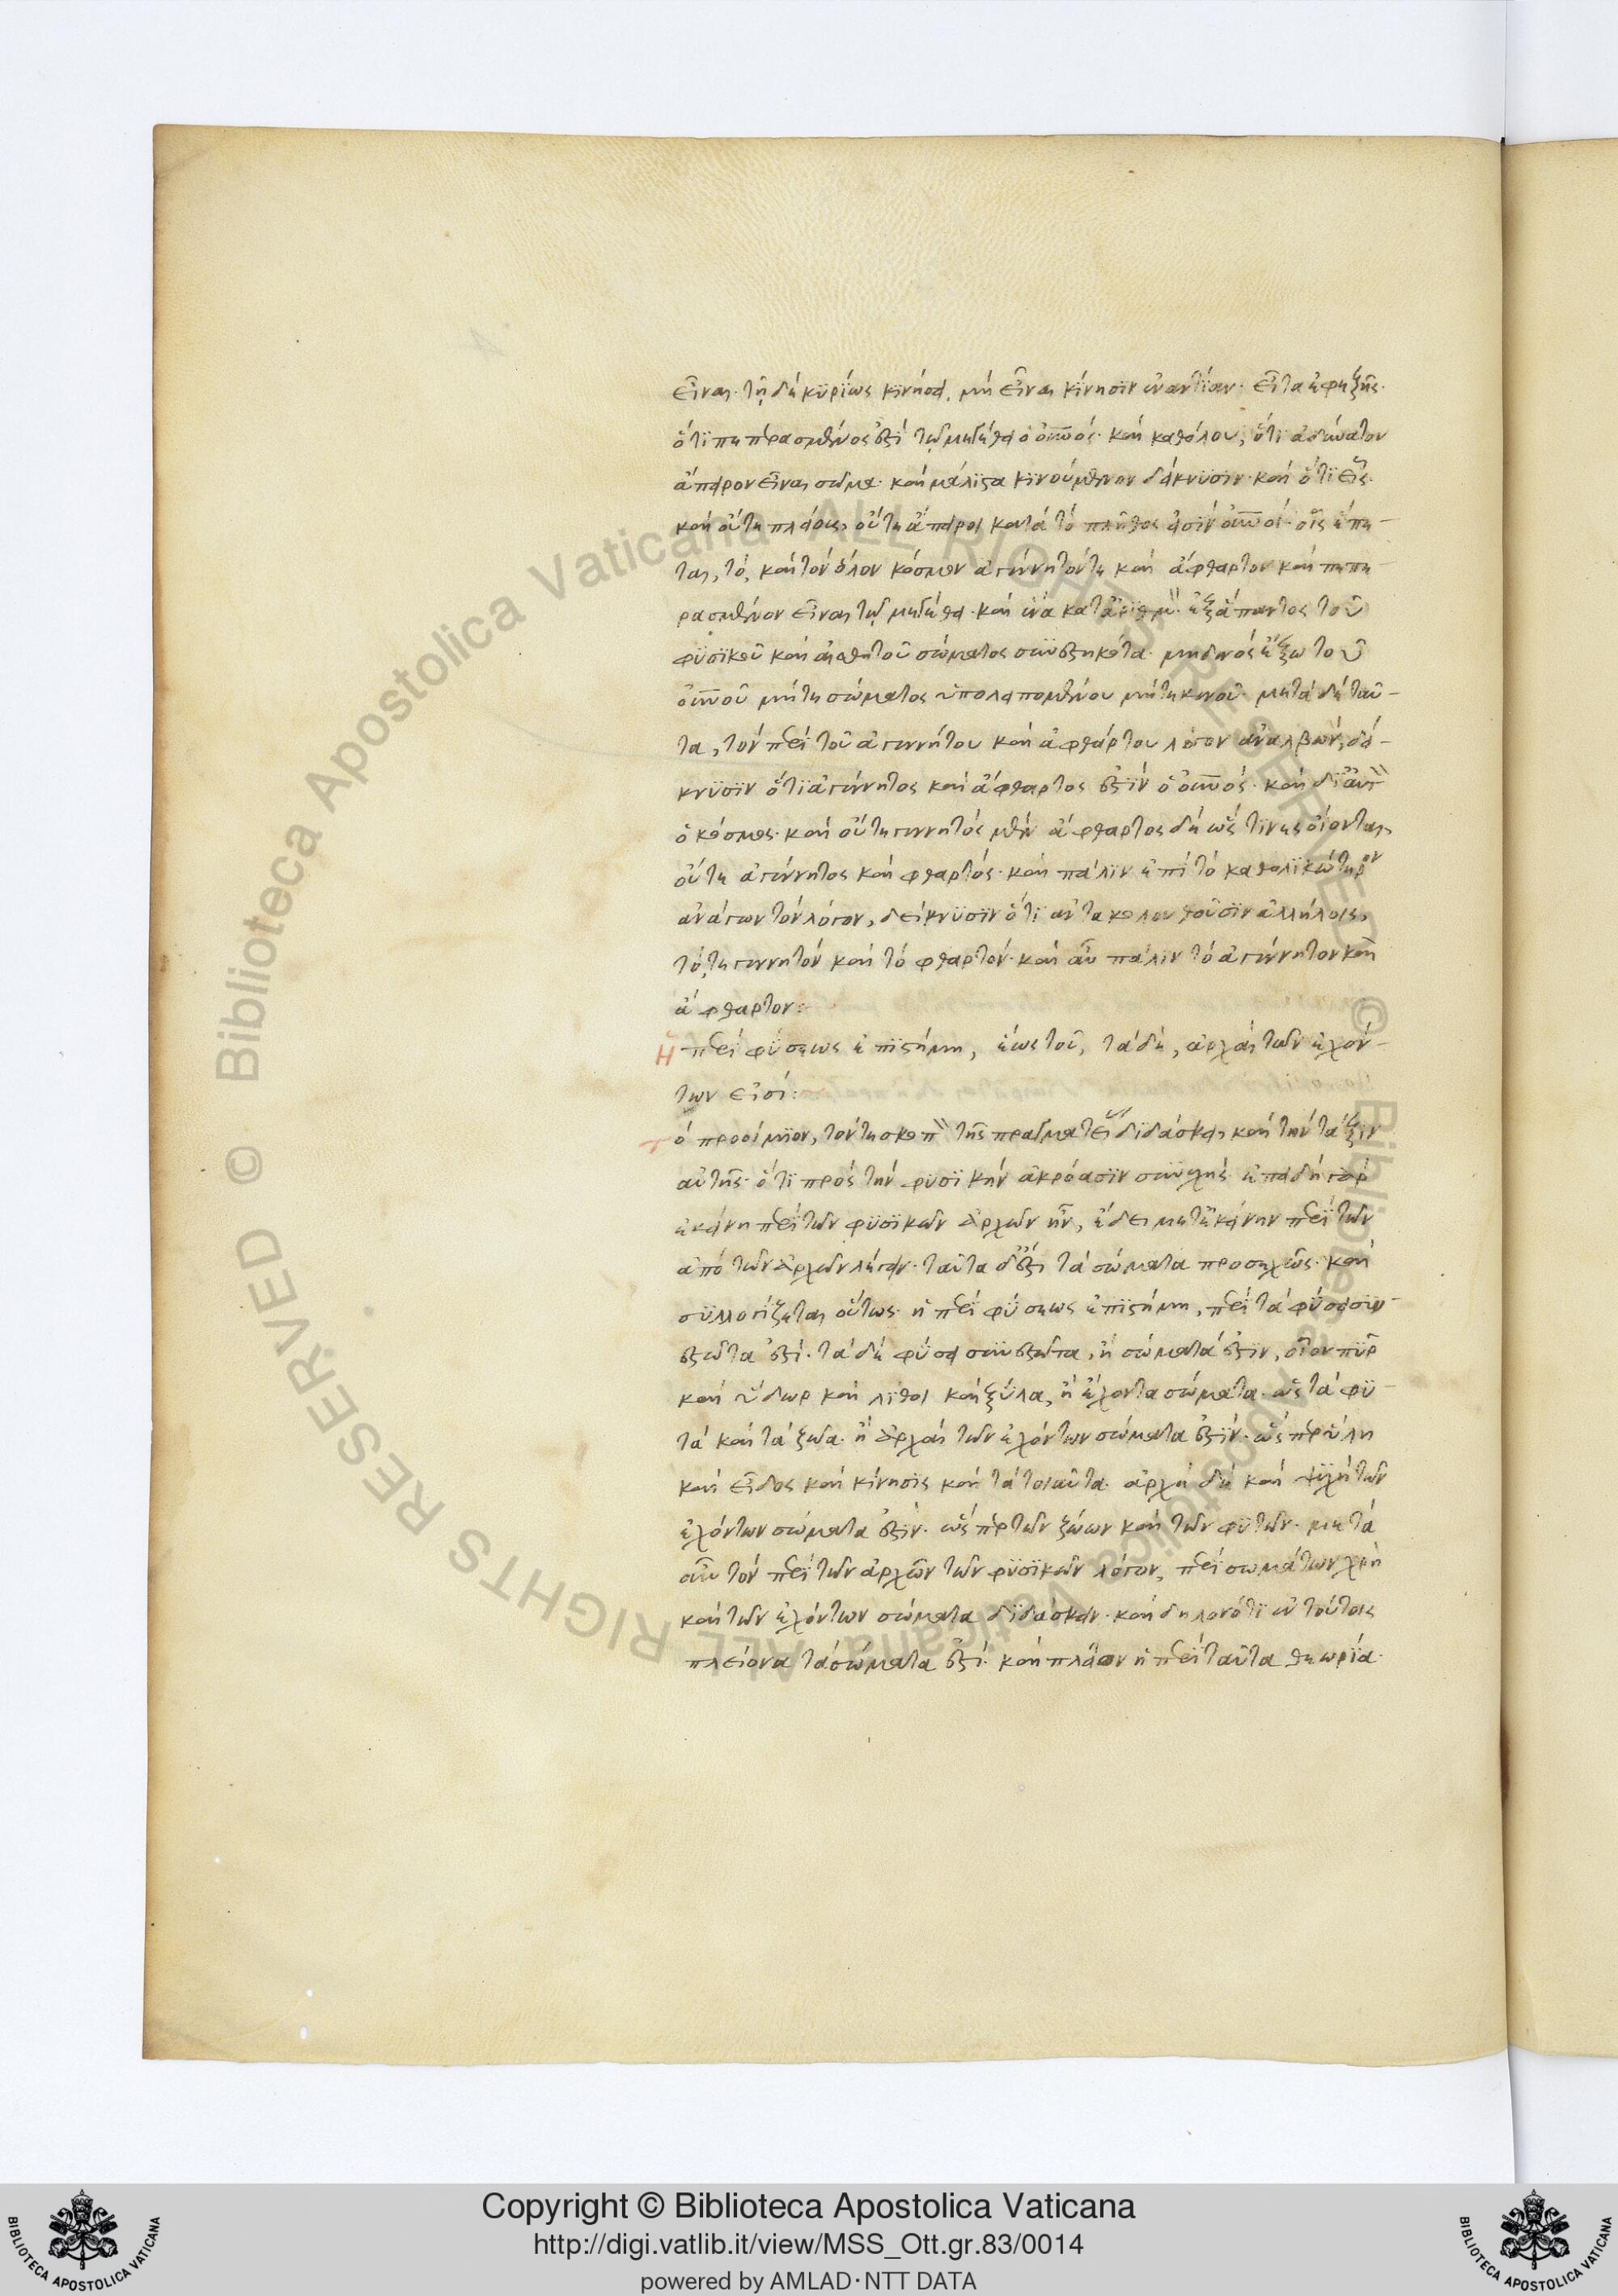 εἶναι· τῆι δὲ κυρίως κινήσει, μὴ εἶναι κίνησιν ἐναντίαν· εἶτα ἐφεξῆς·
ὅτι πεπερασμένος ἐστὶ τῶι μεγέθει ὁ οὐνός· καὶ καθόλου, ὅτι ἀδύνατον
ἄπειρον εἶναι σῶμα· καὶ μάλιστα κινούμενον δείκνυσιν· καὶ ὅτι εἷς·
καὶ οὔτε πλείους, οὔτε ἄπειροι κατὰ τὸ πλῆθος εἰσὶν οὐνοί· οἷς ἕπε-
ται, τὸ, καὶ τὸν ὅλον κόσμον ἀγέννητόν τε καὶ ἄφθαρτον καὶ πεπε-
ρασμένον εἶναι τῶι μεγέθει· καὶ ἕνα κατ' ἀριθμ· ἐξ ἅπαντος τοῦ
φυσικοῦ καὶ αἰσθητοῦ σώματος συνεστηκότα· μηδενὸς ἔξω τοῦ
οὐνοῦ μήτε σώματος ὑπολειπομένου μήτε κενοῦ· μετὰ δὲ ταῦ-
τα, τὸν περὶ τοῦ ἀγεννήτου καὶ ἀφθάρτου λόγον ἀναλαβὼν, δεί-
κνυσιν ὅτι ἀγέννητος καὶ ἄφθαρτος ἐστὶν ὁ οὐνός· καὶ δι' αὐτ
ὁ κόσμος· καὶ οὔτε γεννητὸς μὲν ἄφθαρτος δὲ ὥς τινες οἴονται,
οὔτε ἀγέννητος καὶ φθαρτός· καὶ πάλιν ἐπὶ τὸ καθολικώτερον
ἀνάγων τὸν λόγον, δείκνυσιν ὅτι ἀντακολουθοῦσιν ἀλλήλοις,
τό, τε γεννητὸν καὶ τὸ φθαρτόν· καὶ αὖ πάλιν τὸ ἀγέννητον καὶ
ἄφθαρτον:
Ἡ περὶ φύσεως ἐπιστήμη, ἕως τοῦ, τὰ δὲ, ἀρχαὶ τῶν ἐχόν-
των εἰσί:
Τὸ προοίμιον, τόν τε σκοπ τῆς πραγματεί διδάσκει, καὶ τὴν τάξιν
αὐτῆς· ὅτι πρὸς τὴν φυσικὴν ἀκρόασιν συνεχής· ἐπειδὴ γὰρ
ἐκείνη περὶ τῶν φυσικῶν ἀρχῶν ἦν, ἔδει μετ' ἐκείνην περὶ τῶν
ἀπὸ τῶν ἀρχῶν λέγειν· ταῦτα δ' ἐστὶ τὰ σώματα προσεχῶς· καὶ
συλλογίζεται οὕτως· ἡ περὶ φύσεως ἐπιστήμη, περὶ τὰ φύσει συν-
εστῶτα ἐστί· τὰ δὲ φύσει συνεστῶτα, ἢ σώματά ἐστιν, οἷον πῦρ
καὶ ὕδωρ καὶ λίθοι καὶ ξύλα, ἢ ἔχοντα σώματα· ὡς τὰ φυ-
τὰ καὶ τὰ ζῶα· ἢ ἀρχαὶ τῶν ἐχόντων σώματα ἐστίν· ὥσπερ ὕλη
καὶ εἶδος καὶ κίνησις καὶ τὰ τοιαῦτα· ἀρχὴ δὲ καὶ ψυχὴ τῶν
ἐχόντων σώματα ἐστίν· ὥσπερ τῶν ζώων καὶ τῶν φυτῶν· μετὰ
οὖν τὸν περὶ τῶν ἀρχῶν τῶν φυσικῶν λόγον, περὶ σωμάτων χρὴ
καὶ τῶν ἐχόντων σώματα διδάσκειν· καὶ δηλονότι ἐν τούτοις
πλείονα τὰ σώματα ἐστί· καὶ πλείων ἡ περὶ ταῦτα θεωρία·
Copyright © Biblioteca Apostolica Vaticana
http://digi.vatlib.it/view/MSS_Ott.gr.83/0014
powered by AMLAD·NTT DATA
BIBLIOTECA APOSTOLICA VATICANA
BIBLIOTECA APOSTOLICA VATICANA
© Biblioteca Apostolica Vaticana ALL RIGHTS RESERVED
© Biblioteca Apostolica Vaticana ALL RIGHTS RESERVED